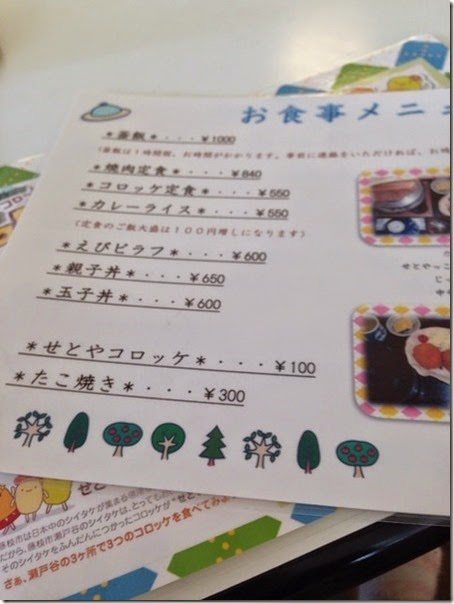 お食事メニ
＊釜飯＊・・・￥1000
（釜飯は１時間程、お時間がかかります。事前に連絡をいただければ、お時
＊焼肉定食＊・・・￥840
＊コロッケ定食＊・・・￥550
＊カレーライス＊・・・￥550
（定食のご飯大盛は１００円増しになります）
＊えびピラフ＊・・・￥600
＊親子丼＊・・・￥650
＊玉子丼＊・・・￥600
＊せとやコロッケ＊・・・￥100
＊たこ焼き＊・・・￥300
枝市は日本中のシイタケが集まる
だから、藤枝市瀬戸谷のシイタケは、とっても
そのシイタケをふんだんにつかったコロッケが“せ
さぁ、瀬戸谷の3ヶ所で3つのコロッケを食べてみ